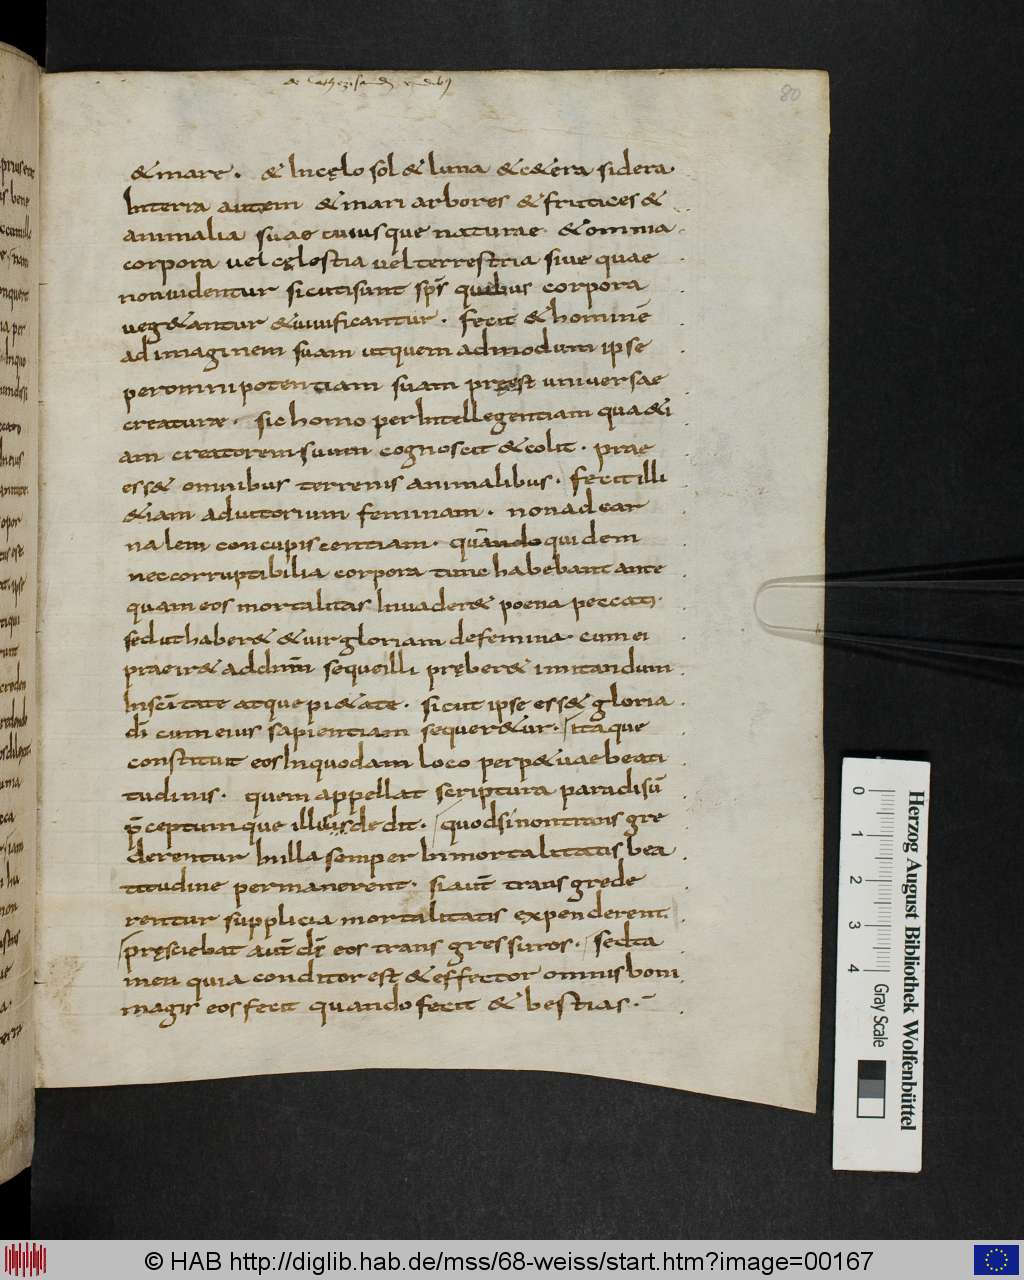 de cathezisandis rudib;
80
& mare. & Incęlo sol & luna & c&era sidera
Interra autem & mari arbores & frutices &
animalia suae cuiusque naturae. & omnia
corpora vel cęlestia vel terrestria siue quae
nonuidentur sicuti sunt sp̄s quibus corpora
veg&antur & uiuificantur. fecit & hominē
ad imaginem suam utquem admodum ipse
per omnipotentiam suam pręest universae
creaturæ. sic homo per Intellegentiam qua &i
am creatorem suum cognoscit & colit. prae
ess& omnibus terrenis animalibus. fecit illi
&iam adiutorium feminam. non ad car
nalem concupiscentiam. quando quidem
nec corruptibilia corpora tunc habebant ante
quam eos mortalitas Inuader& poena peccati.
sed ut haber& & uir gloriam de femina. cum ei
praeir& ad dm̄ seque illi pręber& imitandum
In sc̄itate atque pi&ate. sicut ipse ess& gloria
dī cum eius sapientiam sequer&ur. itaque
constituit eos In quodam loco perp&uae beati
tudinis. quem appellat scriptura paradisū
p̄ceptumque illis dedit. quod si non transgre
derentur In illa semper Inmortalitatis bea
titudine permanerent. si aut̄ transgrede
rentur supplicia mortalitatis expenderent.
pręsciebat aut̄ dr̄ eos transgressuros. sed ta
men quia conditor est & effector omnis boni
magis eos fecit quando fecit & bestias.
Herzog August Bibliothek Wolfenbüttel
0 1 2 3 4 Gray Scale
© HAB http://diglib.hab.de/mss/68-weiss/start.htm?image=00167